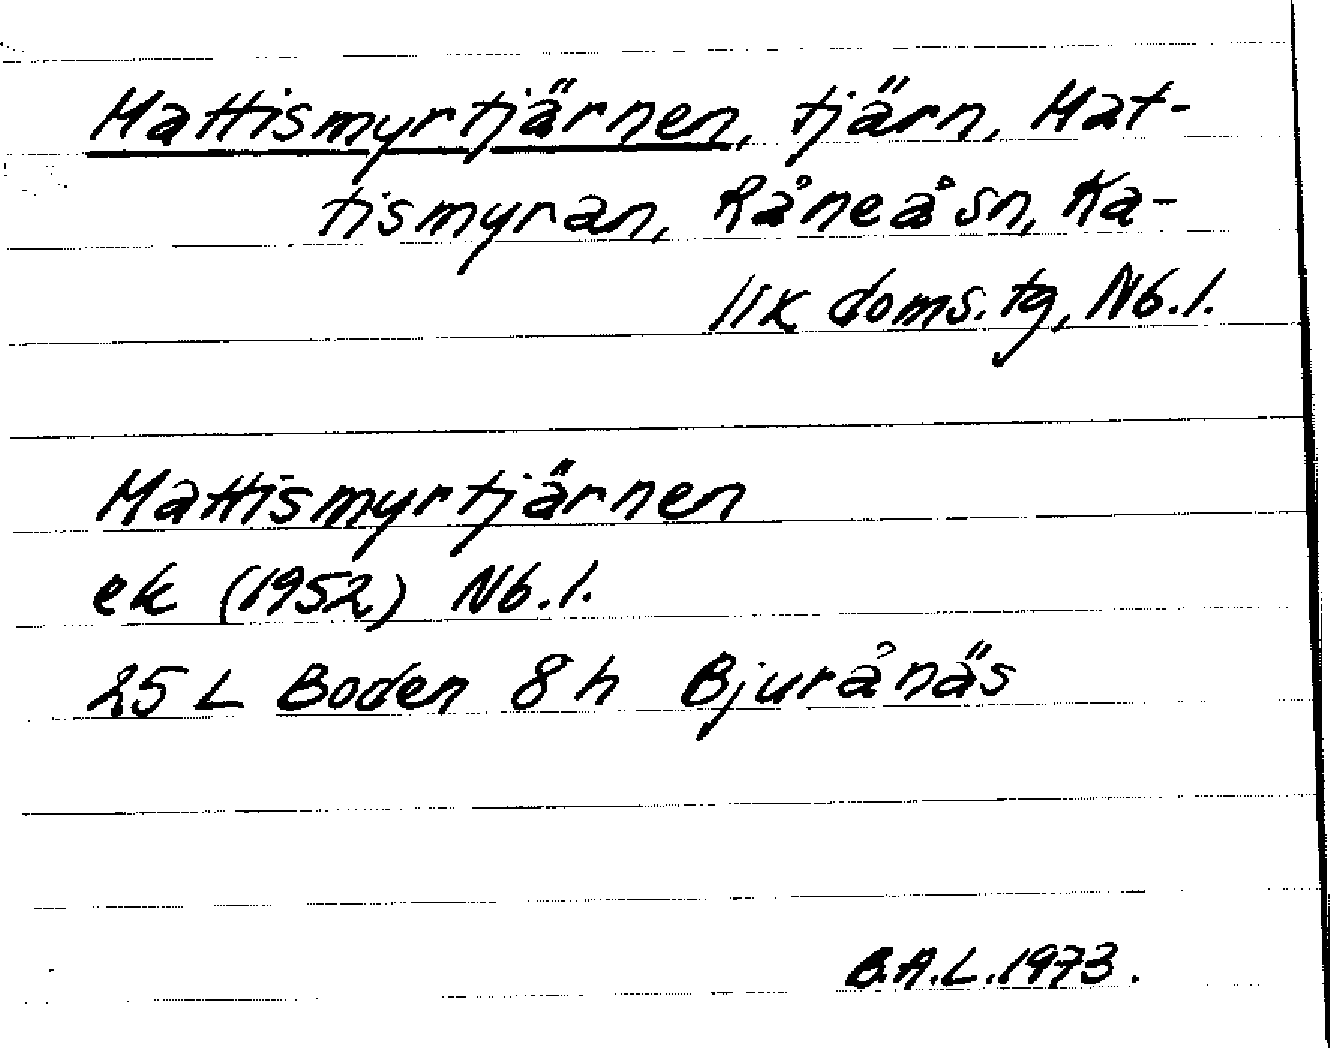 Mattismyrtjärnen, tjärn, Mat-
tismyran, Råneå sn, Ka-
lix doms.tg, Nb.l.
Mattismyrtjärnen
ek (1952) Nb.l.
25 L Boden 8 h Bjurånäs
B.A.L.1973.